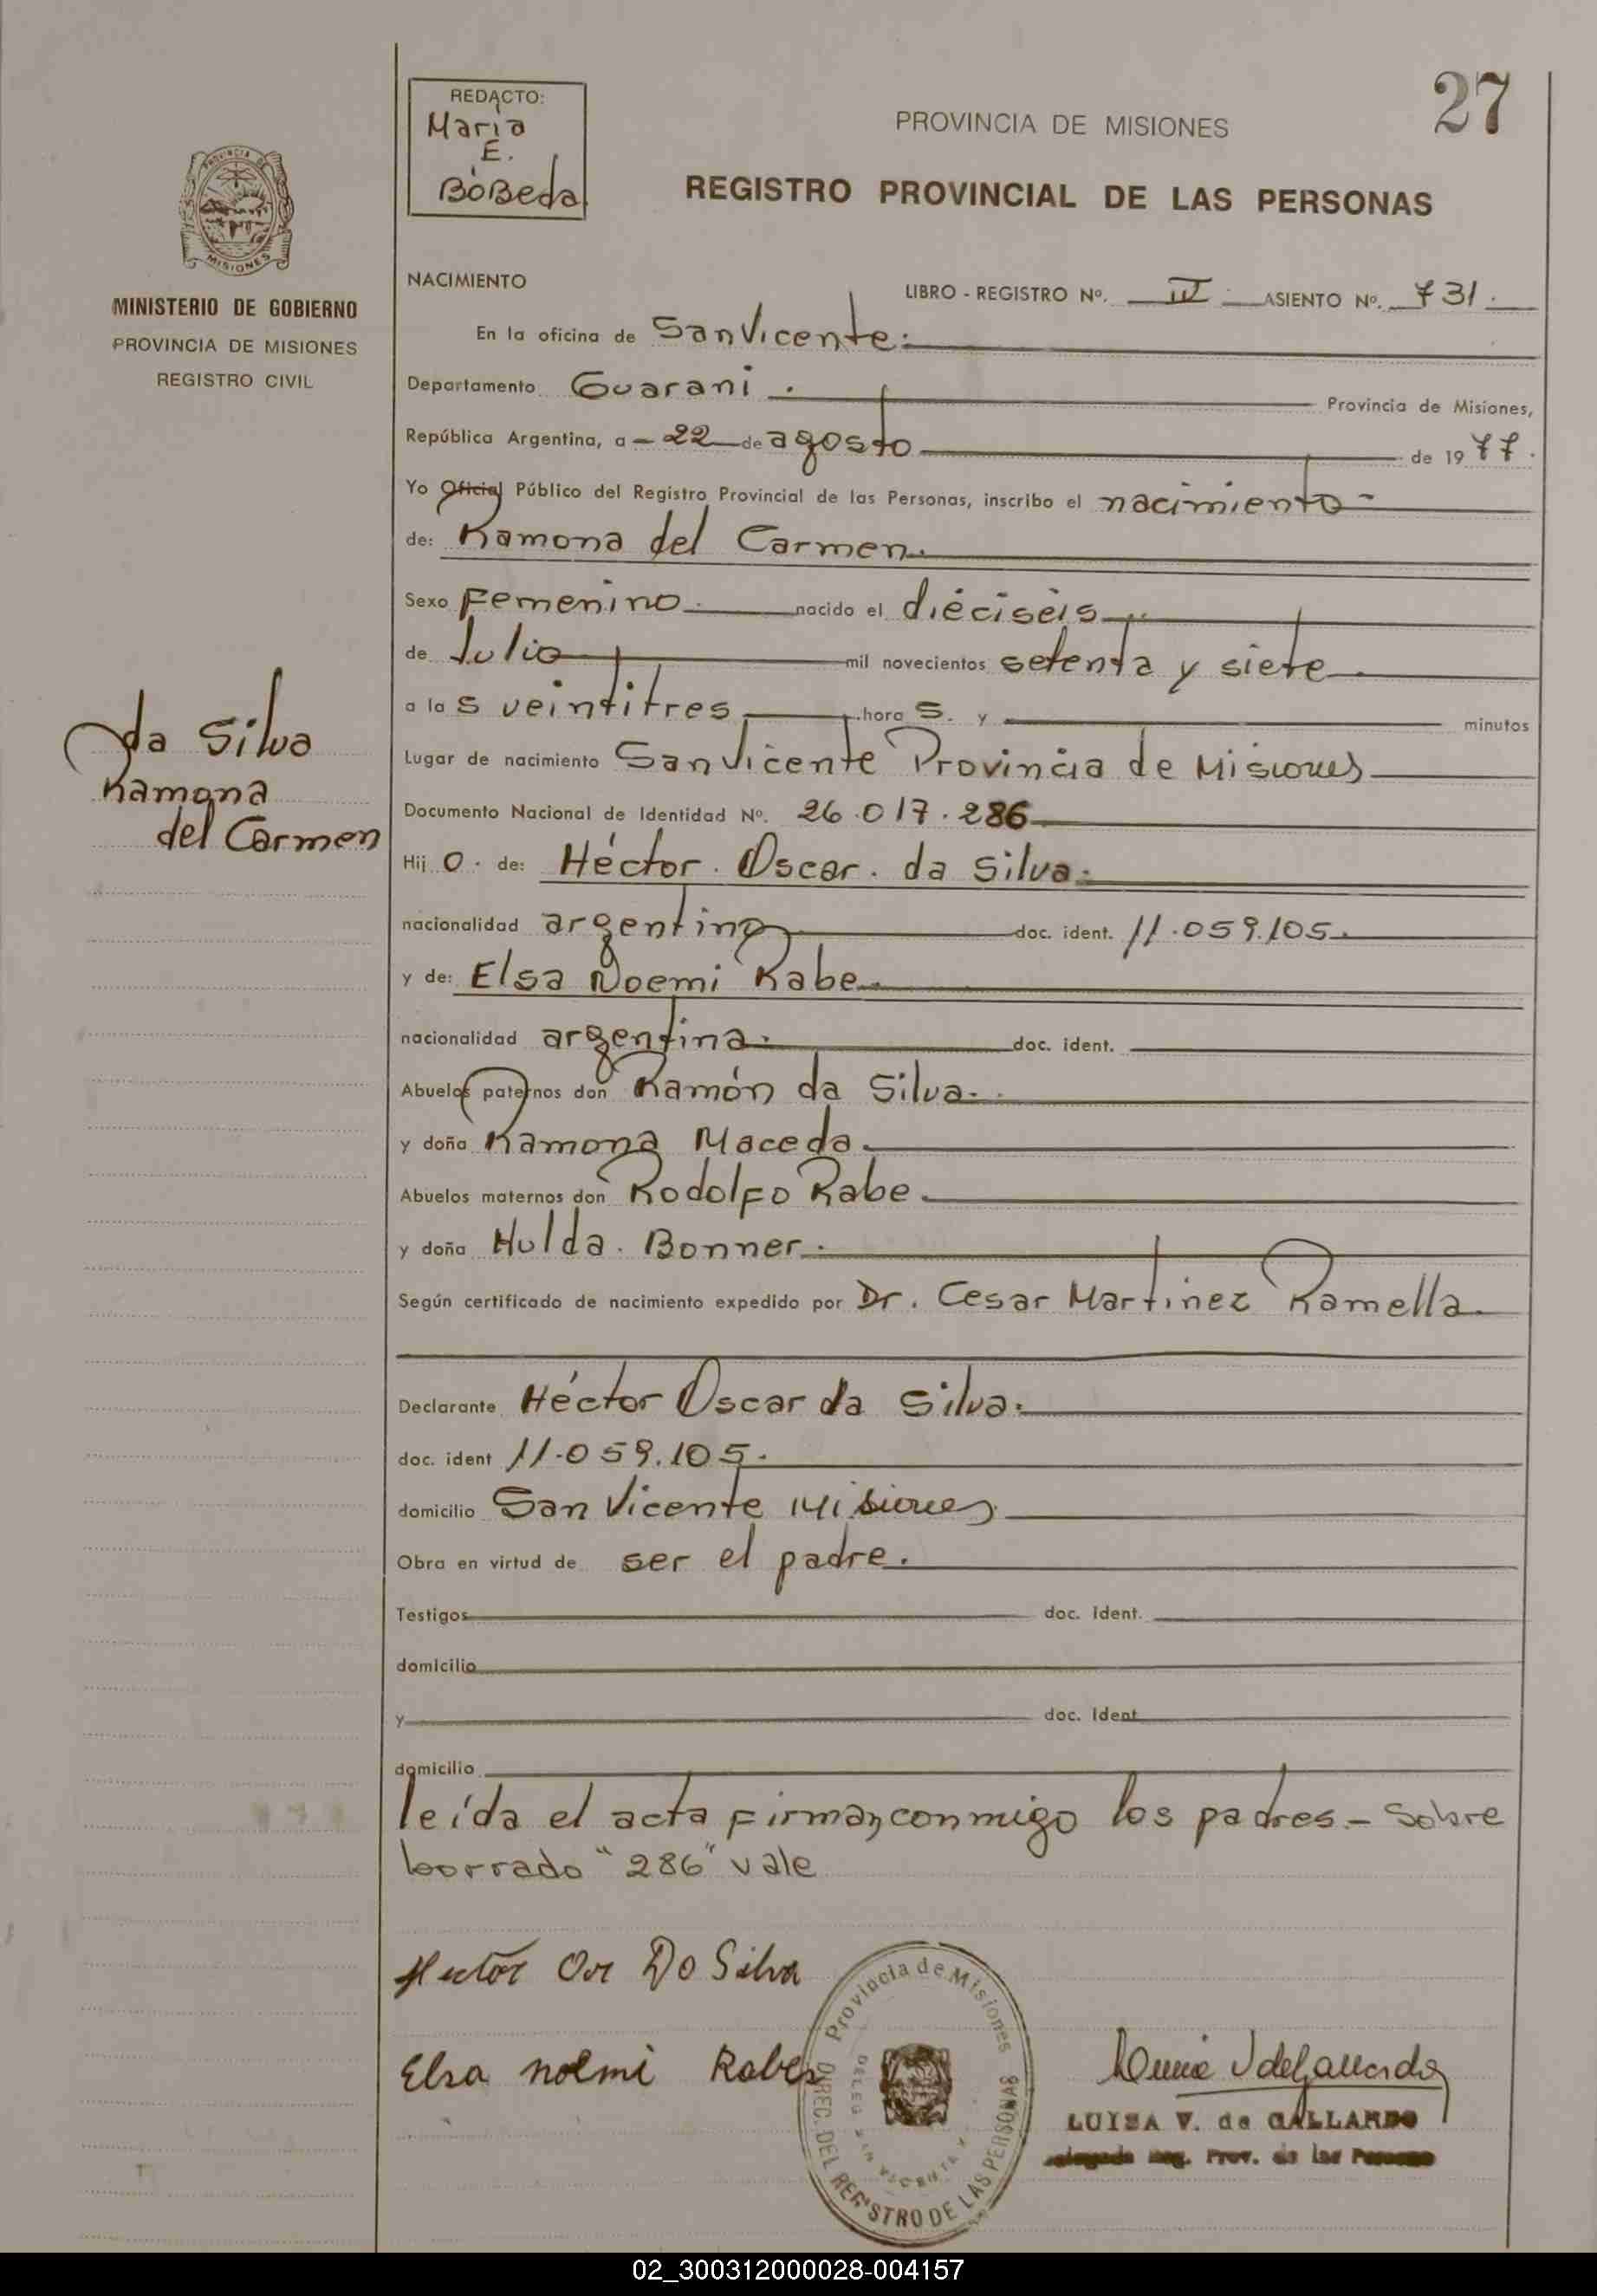 27
REDACTO:
Maria
E.
BòBeda
PROVINCIA DE MISIONES
REGISTRO PROVINCIAL DE LAS PERSONAS
PROVINCIA DE
MISIONES
MINISTERIO DE GOBIERNO
PROVINCIA DE MISIONES
REGISTRO CIVIL
NACIMIENTO
LIBRO - REGISTRO Nº. IV ASIENTO Nº. 731.
En la oficina de San Vicente.
Departamento Guarani. Provincia de Misiones,
República Argentina, a - 22 de agosto de 1977.
Yo Oficial Público del Registro Provincial de las Personas, inscribo el nacimiento-
de: Ramona del Carmen.
Sexo Femenino. nacido el diéciséis
de Julio mil novecientos setenta y siete
a las veintitres hora s. y minutos
Lugar de nacimiento San Vicente Provincia de Misiones
Documento Nacional de Identidad Nº. 26.017.286
Hij o. de: Héctor. Oscar. da Silva.
nacionalidad argentino doc. ident. 11.059.105.
y de: Elsa Noemi Rabe.
nacionalidad argentina. doc. ident.
Abuelos paternos don Ramón da Silva.
y doña Ramona Maceda.
Abuelos maternos don Rodolfo Rabe.
y doña Hulda. Bonner.
Según certificado de nacimiento expedido por Dr. Cesar Martinez Ramella.
Declarante Héctor Oscar da Silva.
doc. ident 11.059.105.
domicilio San Vicente Misiones.
Obra en virtud de ser el padre.
Testigos doc. ident.
domicilio
y doc. ident
domicilio
leída el acta firman conmigo los padres.- Sobre
borrado "286" vale
da Silva
Ramona
del Carmen
Hector Osr Da Silva
Elsa noemi Rabe
Provincia de Misiones
DIREC. DEL REGISTRO DE LAS PERSONAS
DELEG. SAN VICENTE
LUISA V. de GALLARDO
Reg. Prov. de las Personas
02_300312000028-004157